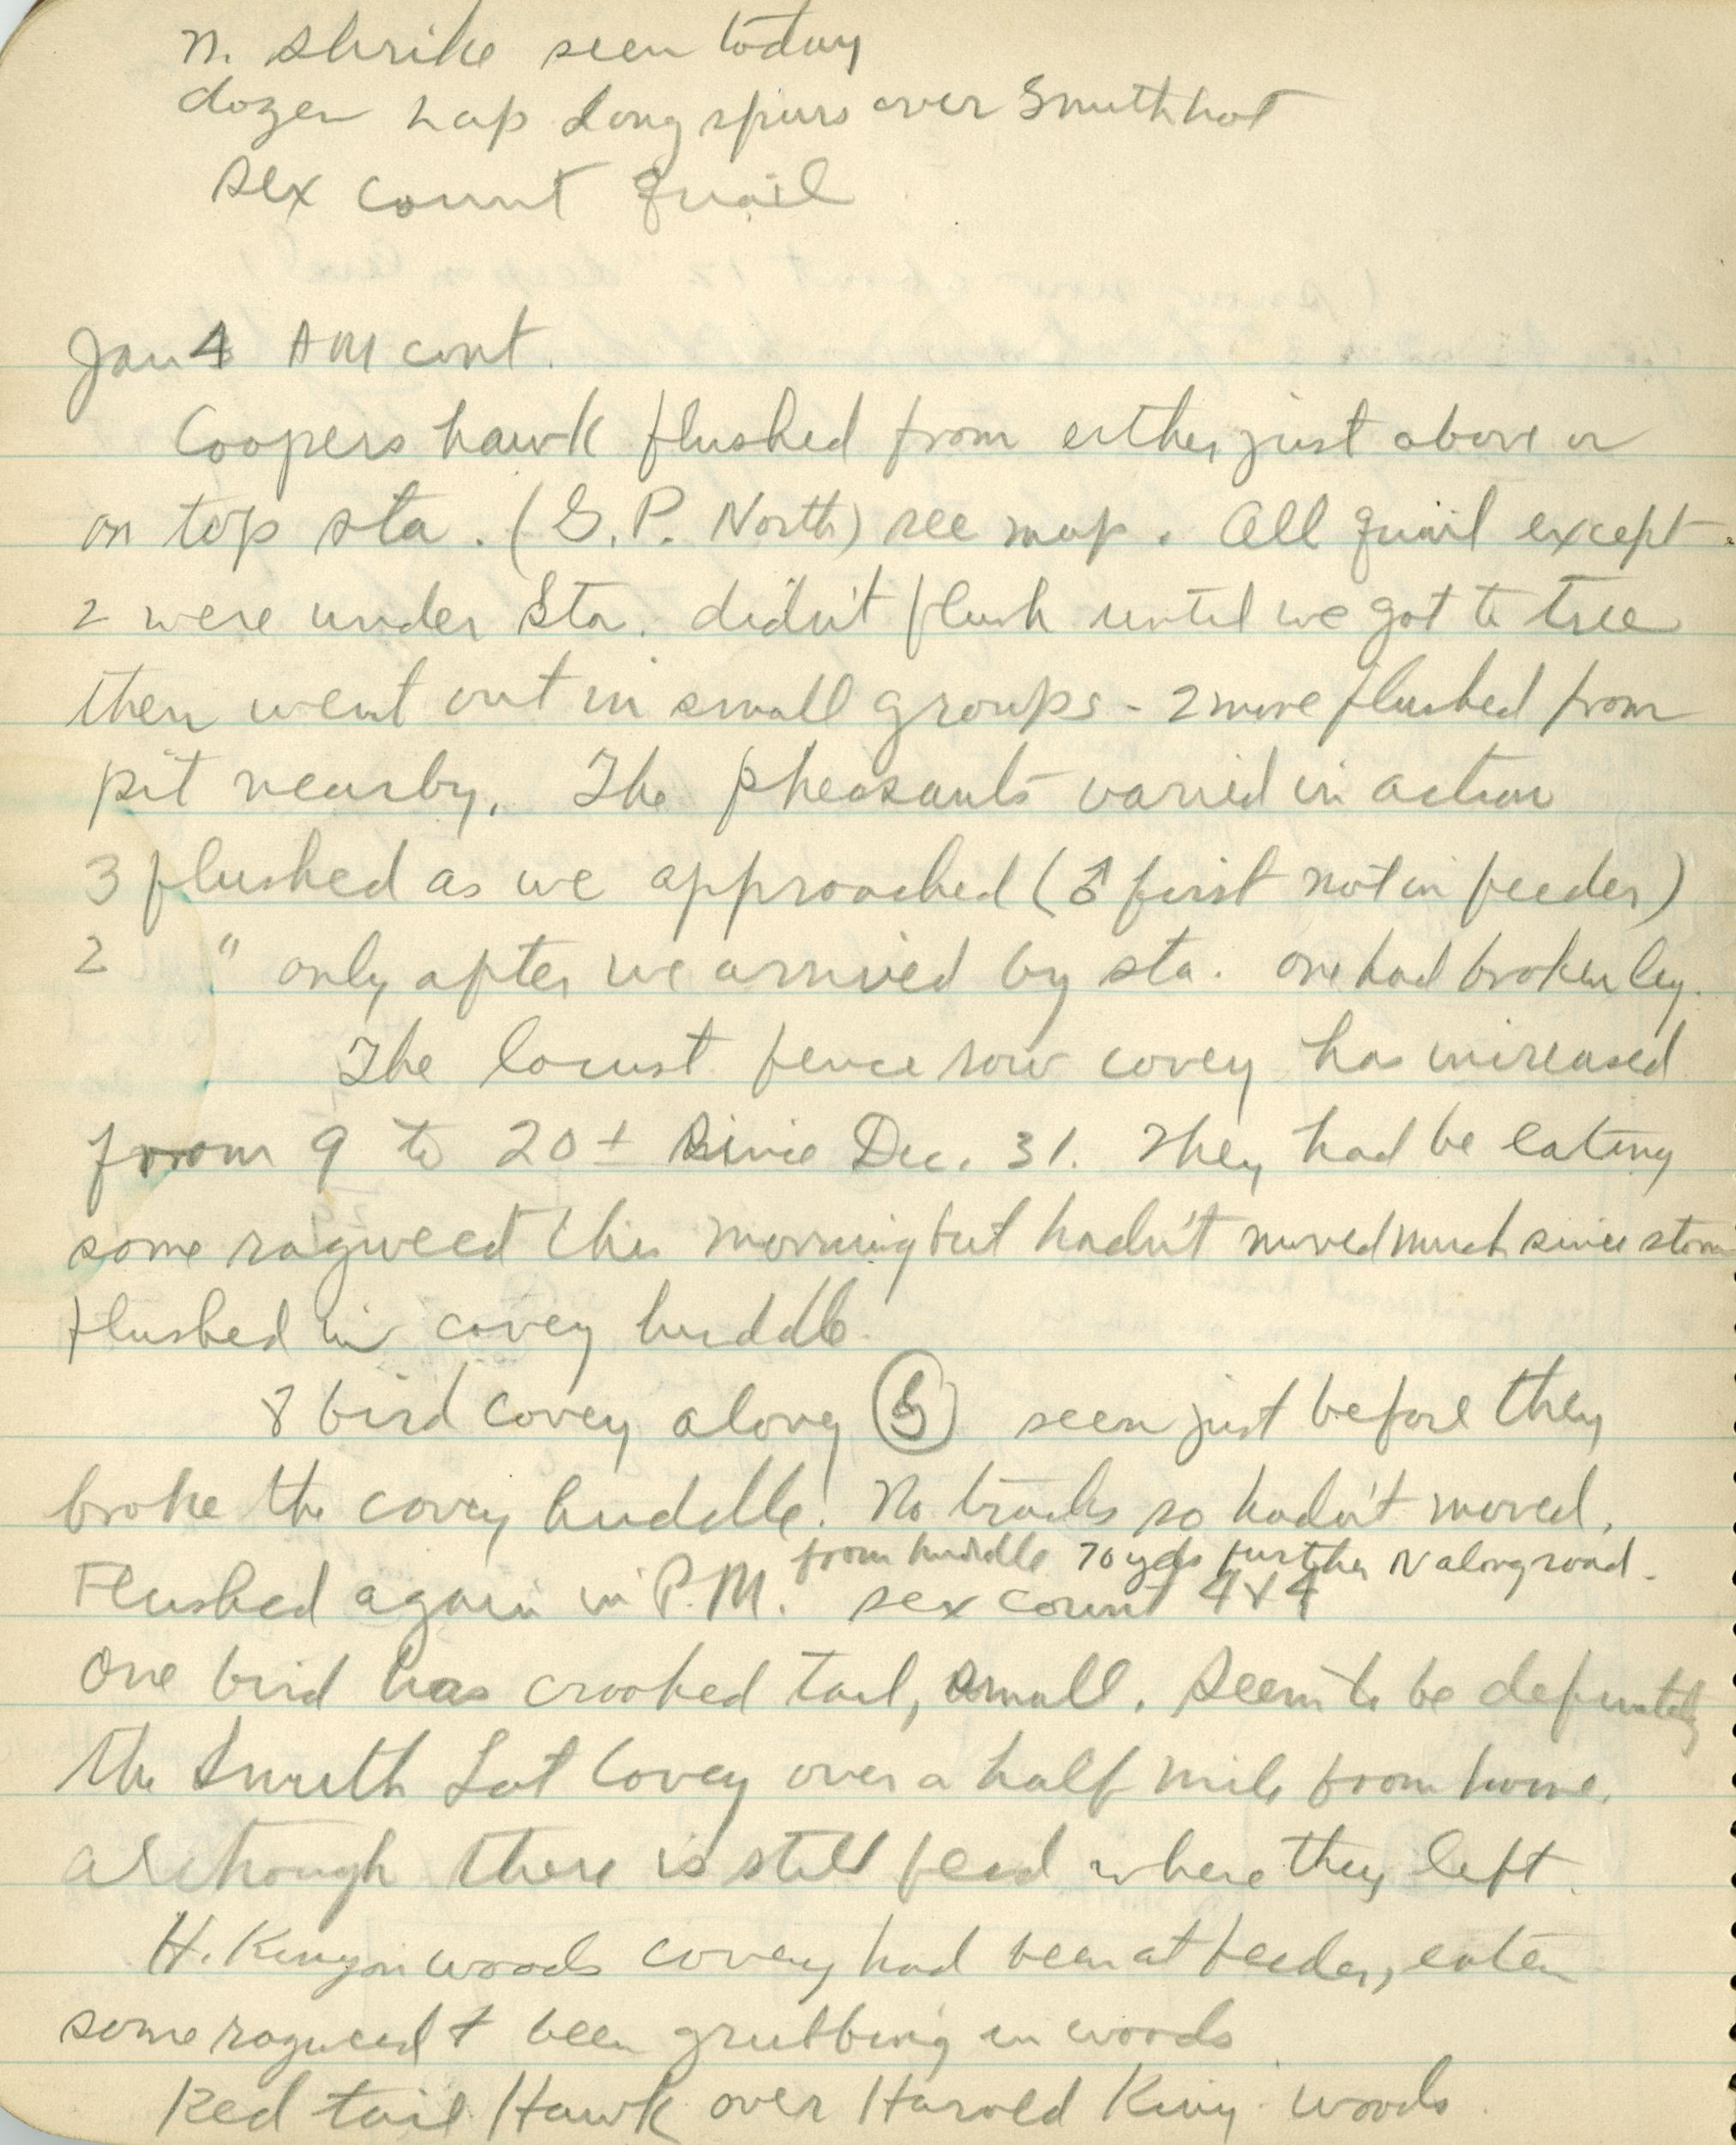 N. Shrike seen today
dozen Lap Longspurs over Smith Lot
Sex count quail
Jan 4 AM cont.
Coopers hawk flushed from either just above or
on top sta. (G.P. North) see map. All quail except
2 were under Sta. didn't flush until we got to tree
then went out in small groups - 2 more flushed from
pit nearby. The pheasants varied in action
3 flushed as we approached (♂ first not in feeder)
2 " only after we arrived by sta. one had broken leg.
The locust fence row covey has increased
from 9 to 20± since Dec. 31. They had be eating
some ragweed this morning but hadn't moved much since storm
Flushed in covey huddle.
8 bird covey along seen just before they
broke the covey huddle. No tracks so hadn't moved.
from huddle 70 yds further N along road.
Flushed again in P.M. sex count 4 + 4
One bird has crooked tail, small. Seem to be definitely
the Smith Lot Covey over a half mile from home.
although there is still feed where they left.
H. Kenyon woods covey had been at feeder, eaten
some ragweed + been grubbing in woods
Red tail Hawk over Harold King woods.